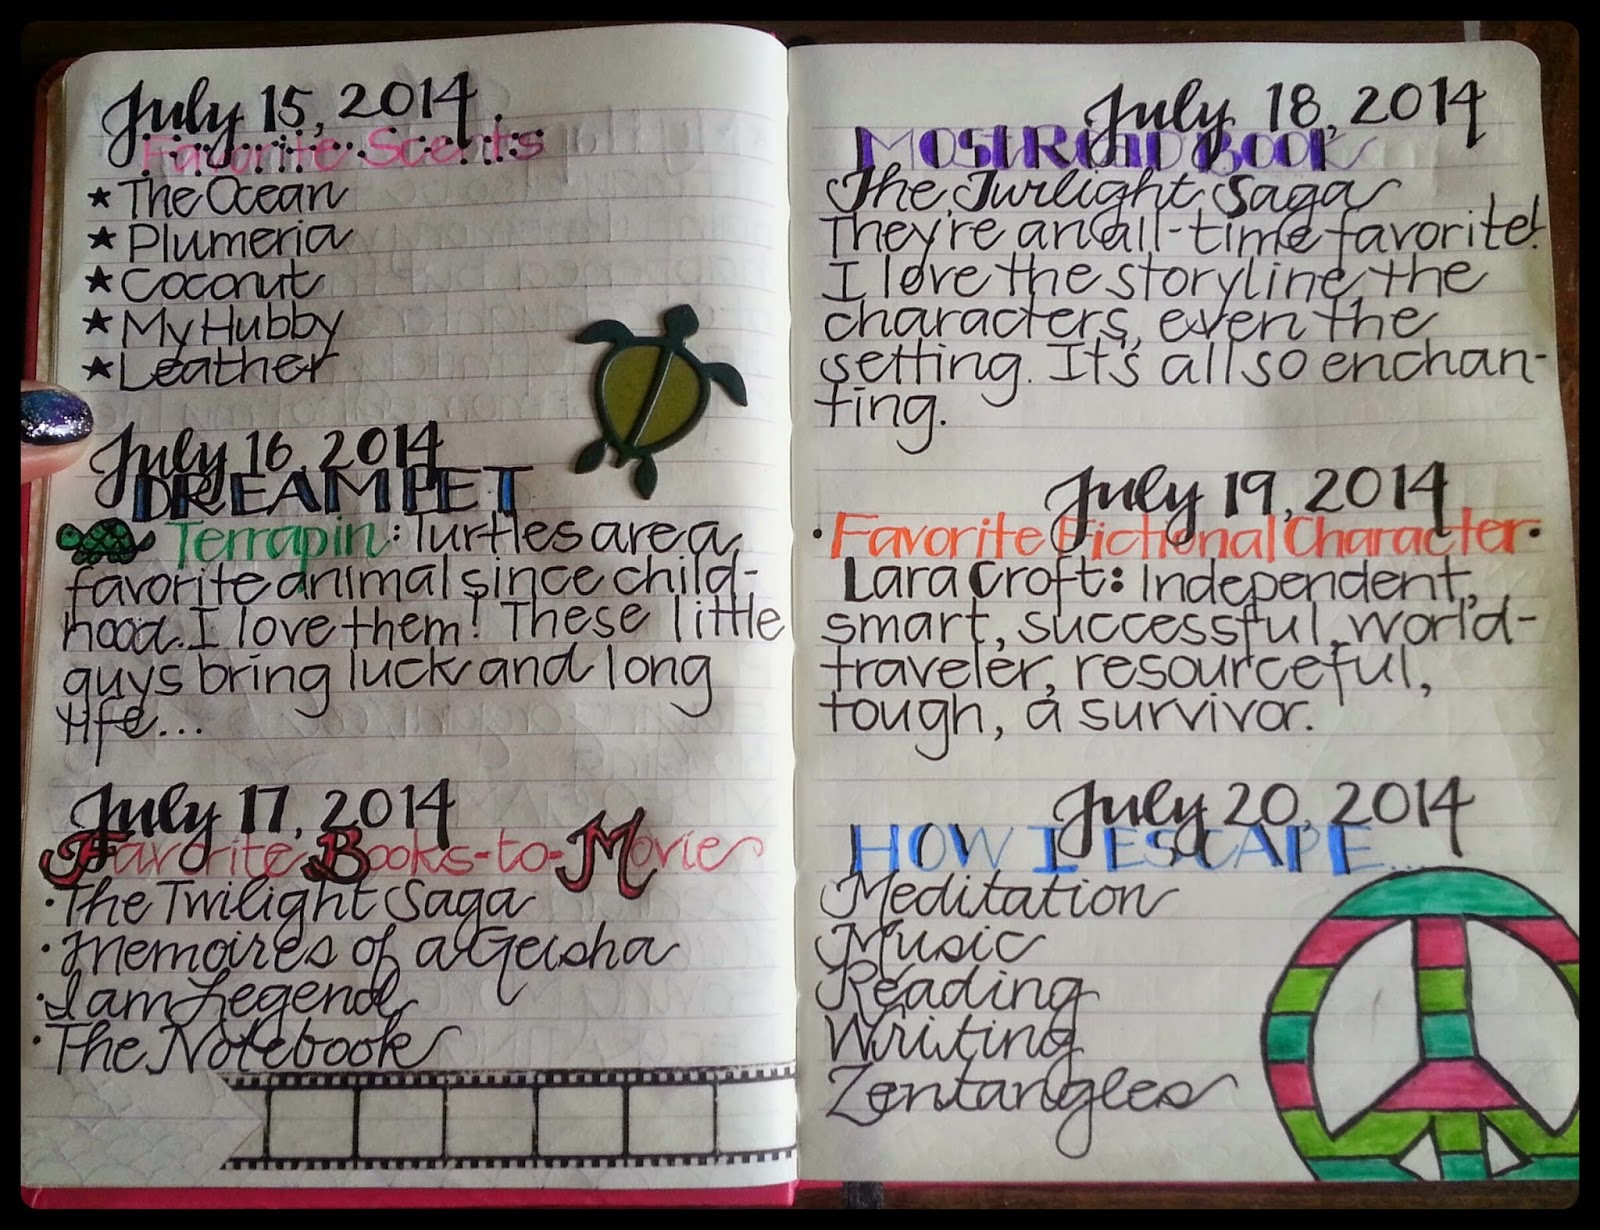 July 15, 2014
Favorite Scents
★ The Ocean
★ Plumeria
★ Coconut
★ My Hubby
★ Leather
July 16, 2014
DREAM PET
Terrapin: Turtles are a
favorite animal since child-
hood. I love them! These little
guys bring luck and long
life...
July 17, 2014
Favorite Books-to-Movie
• The Twilight Saga
• Memoires of a Geisha
• I am Legend
• The Notebook
July 18, 2014
MOST READ BOOK
The Twilight Saga
They're an all-time favorite!
I love the storyline, the
characters, even the
setting. It's all so enchan-
ting.
July 19, 2014
• Favorite Fictional Character •
Lara Croft: Independent,
smart, successful, world-
traveler, resourceful,
tough, a survivor.
July 20, 2014
HOW I ESCAPE...
Meditation
Music
Reading
Writing
Zentangles